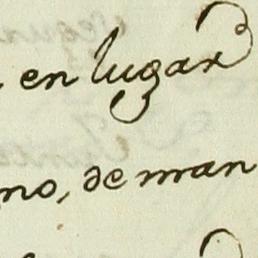 en lugar
no, de man